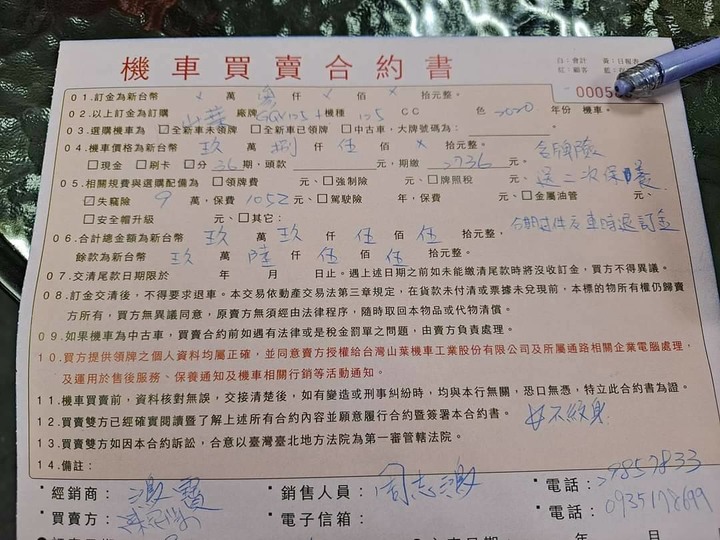 機車買賣合約書
白:會計 黃:日報表
紅:顧客 藍:
0005
01.訂金為新台幣 × 萬 參 仟 × 佰 × 拾元整。
02.以上訂金為訂購 山葉 廠牌 125 機種 125 CC 色 2020 年份 機車。
03.選購機車為 □全新車未領牌 □全新車已領牌 □中古車,大牌號碼為: 。
04.機車價格為新台幣 玖 萬 捌 仟 伍 佰 × 拾元整。 含牌險
□現金 □刷卡 □分 36 期,頭款 元,期繳 2736 元。
05.相關規費與選購配備為 □領牌費 元、□強制險 元、□牌照稅 元、 送二次保養
☑失竊險 9 萬,保費 1052 元、□駕駛險 年,保費 元、□金屬油管 元、
□安全帽升級 元、□其它: 分期過件交車時退訂金
06.合計總金額為新台幣 玖 萬 玖 仟 伍 佰 伍 拾元整,
餘款為新台幣 玖 萬 陸 仟 伍 佰 伍 拾元整。
07.交清尾款日期限於 年 月 日止。遇上述日期之前如未能繳清尾款時將沒收訂金,買方不得異議。
08.訂金交清後,不得要求退車。本交易依動產交易法第三章規定,在貨款未付清或票據未兌現前,本標的物所有權仍歸賣
方所有,買方無異議同意,原賣方無須經由法律程序,隨時取回本物品或代物清償。
09.如果機車為中古車,買賣合約前如遇有法律或是稅金罰單之問題,由賣方負責處理。
10.買方提供領牌之個人資料均屬正確,並同意賣方授權給台灣山葉機車工業股份有限公司及所屬通路相關企業電腦處理,
及運用於售後服務、保養通知及機車相關行銷等活動通知。
11.機車買賣前,資料核對無誤,交接清楚後,如有變造或刑事糾紛時,均與本行無關,恐口無憑,特立此合約書為證。
12.買賣雙方已經確實閱讀暨了解上述所有合約內容並願意履行合約暨簽署本合約書。 #不紋身
13.買賣雙方如因本合約訴訟,合意以臺灣臺北地方法院為第一審管轄法院。
14.備註:
•經銷商: •銷售人員: 周志鴻 •電話: 29857833
•買賣方: •電子信箱: •電話: 0935178699
年 月